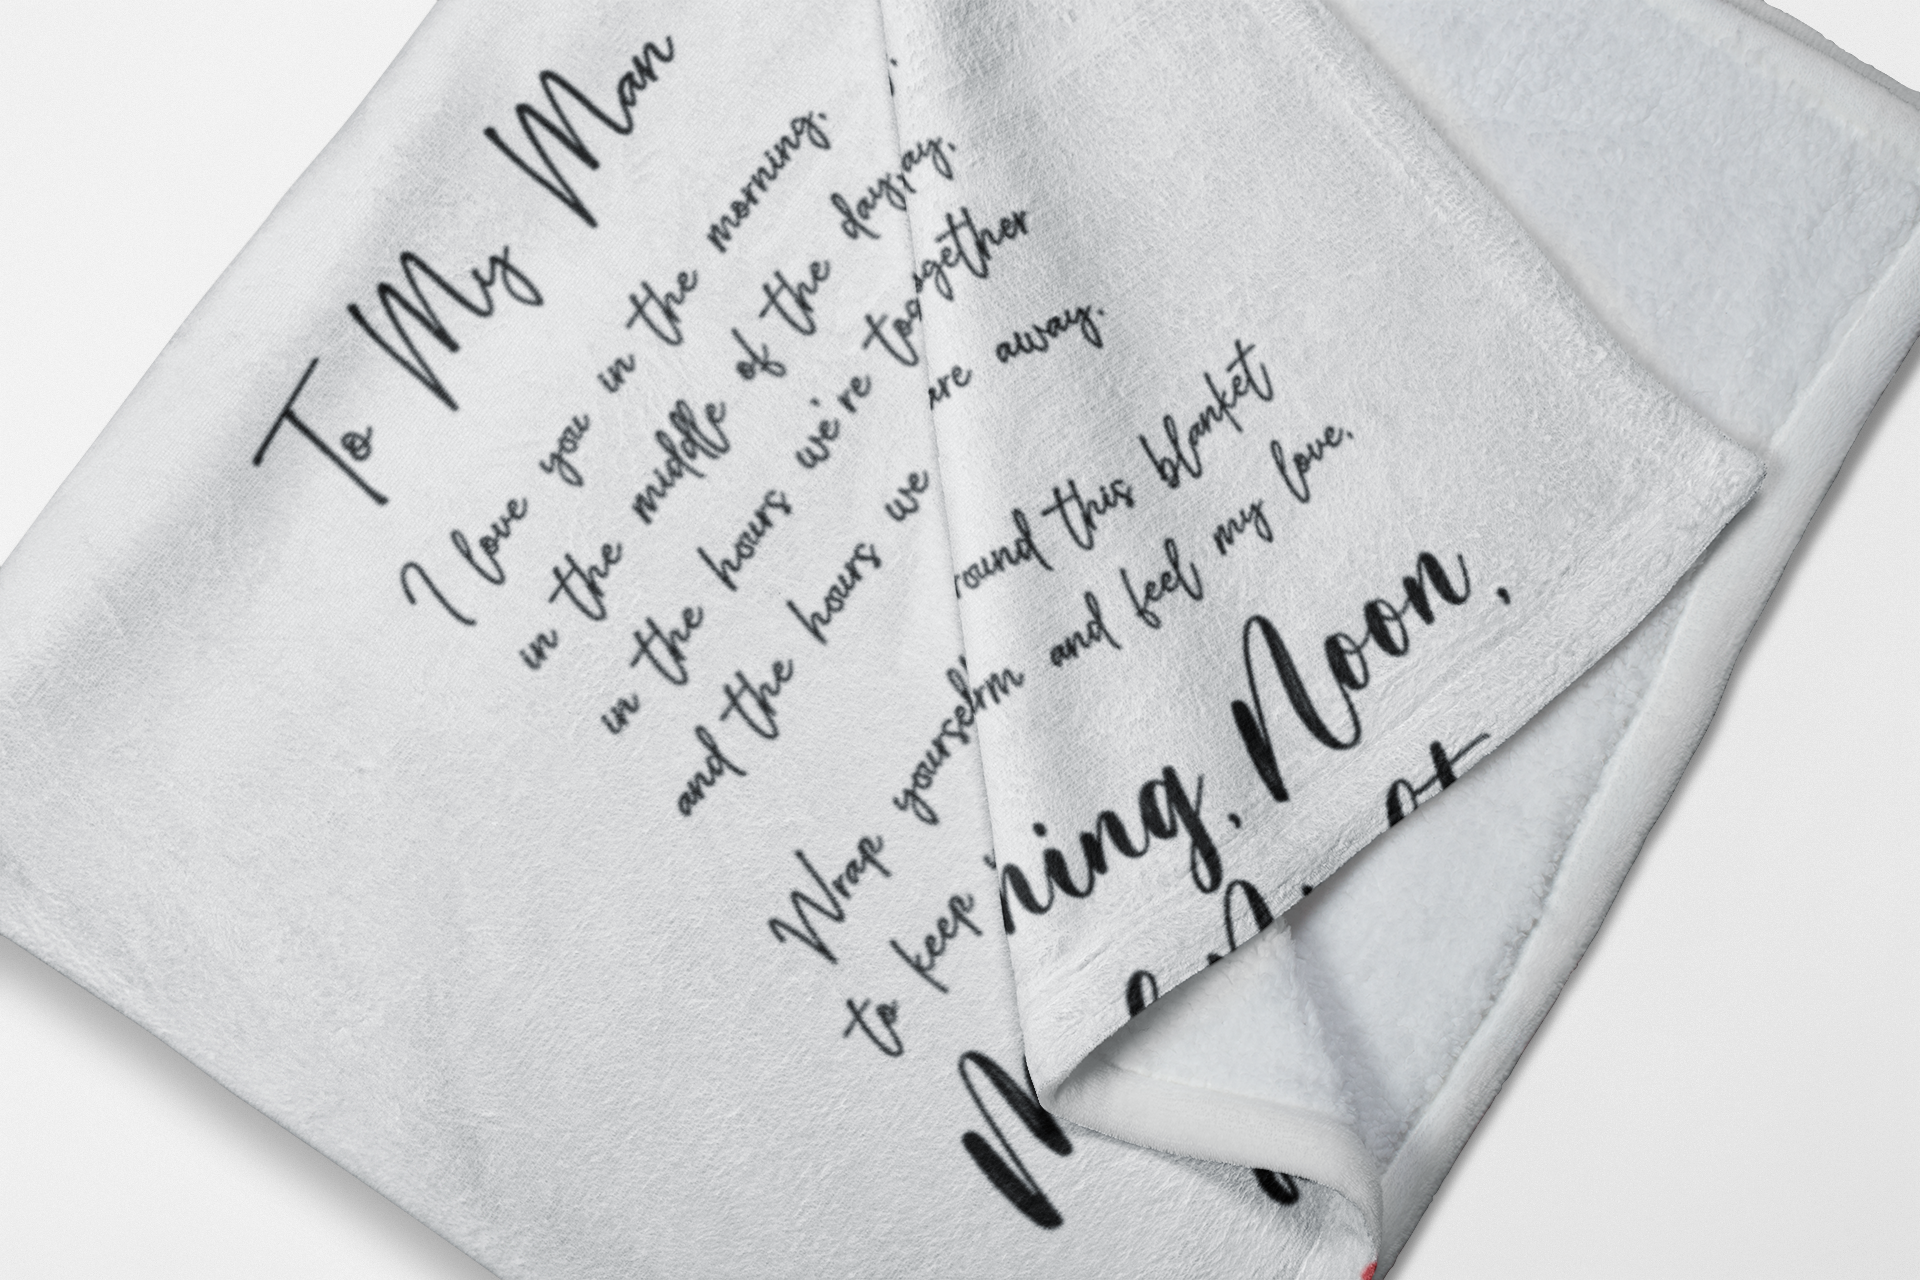 To My Man
I love you in the morning.
in the middle of the day,
in the hours we're together
and the hours we are away.
Wrap yourself round this blanket
to keep and feel my love.
ning, Noon,